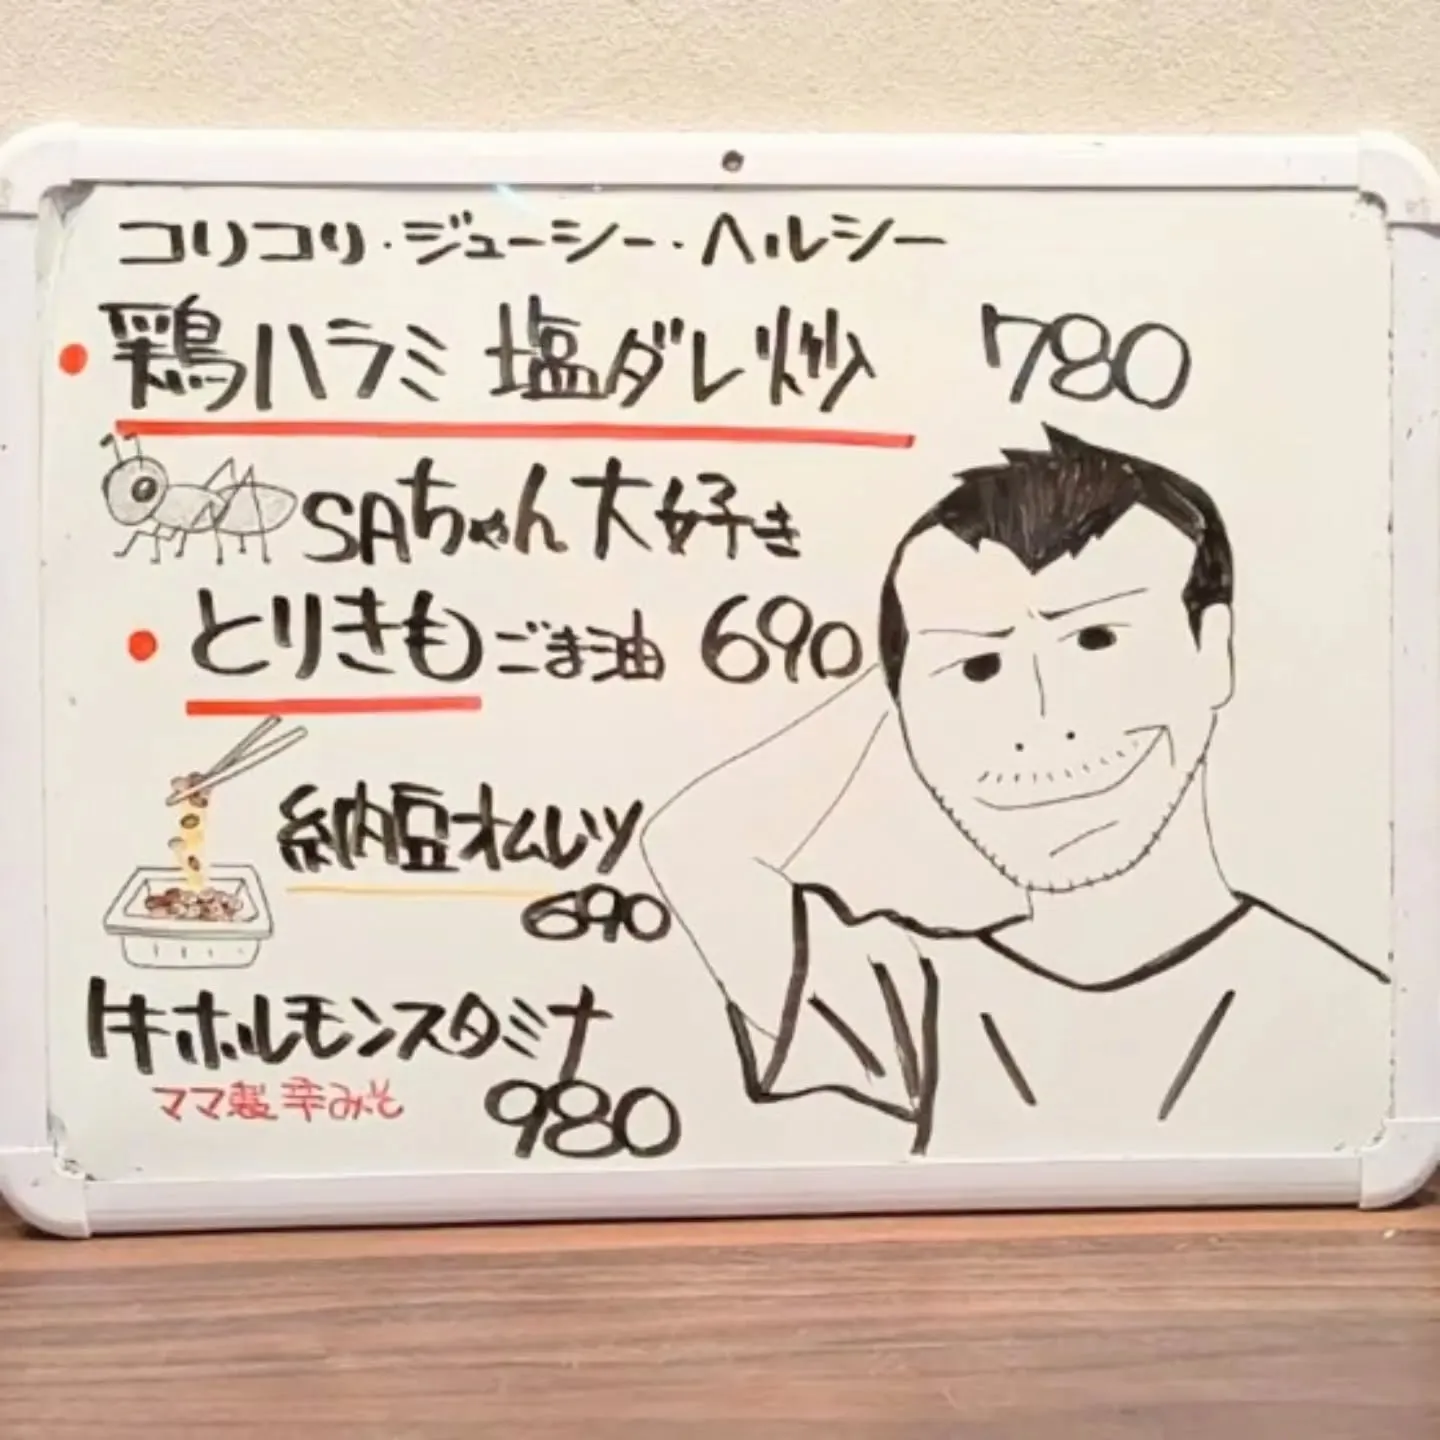 コリコリ・ジューシー・ヘルシー
鶏ハラミ 塩ダレ炒 780
SAちゃん大好き
とりきもごま油 690
納豆オムレツ
690
牛ホルモンスタミナ
ママ製辛みそ 980